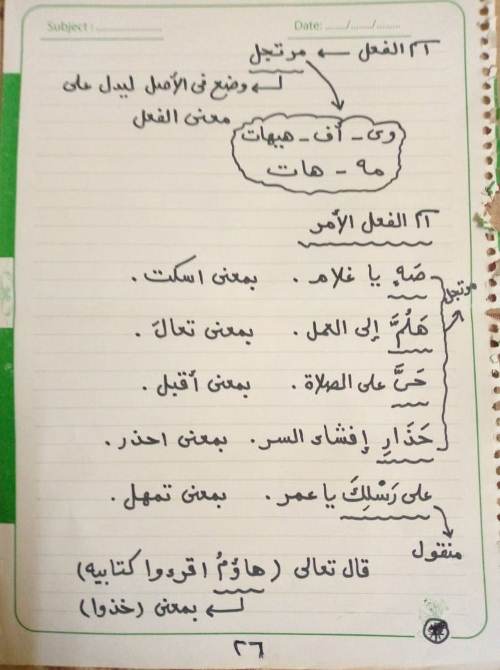 Subject : .................. Date: ....../....../.........
ا٢ الفعل ← مرتجل
وضع فى الأصل ليدل على
معنى الفعل
وى - أف - هيهات
مه - هات
ا٢ الفعل الأمر
صَهٍ يا غلام . بمعنى اسكت .
مرتجل
هَلُمَّ إلى العمل . بمعنى تعالَ .
حَىَّ على الصلاة . بمعنى أقبل .
حَذَارِ إفشاء السر . بمعنى احذر .
على رَسْلِكَ يا عمر . بمعنى تمهل .
منقول
قال تعالى ( هاؤمُ اقرءوا كتابيه )
بمعنى (خذوا)
٢٦